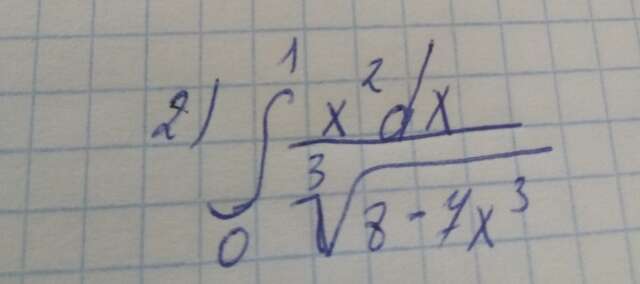 2) ∫₀¹ x² dx / ∛(8 - 7x³)